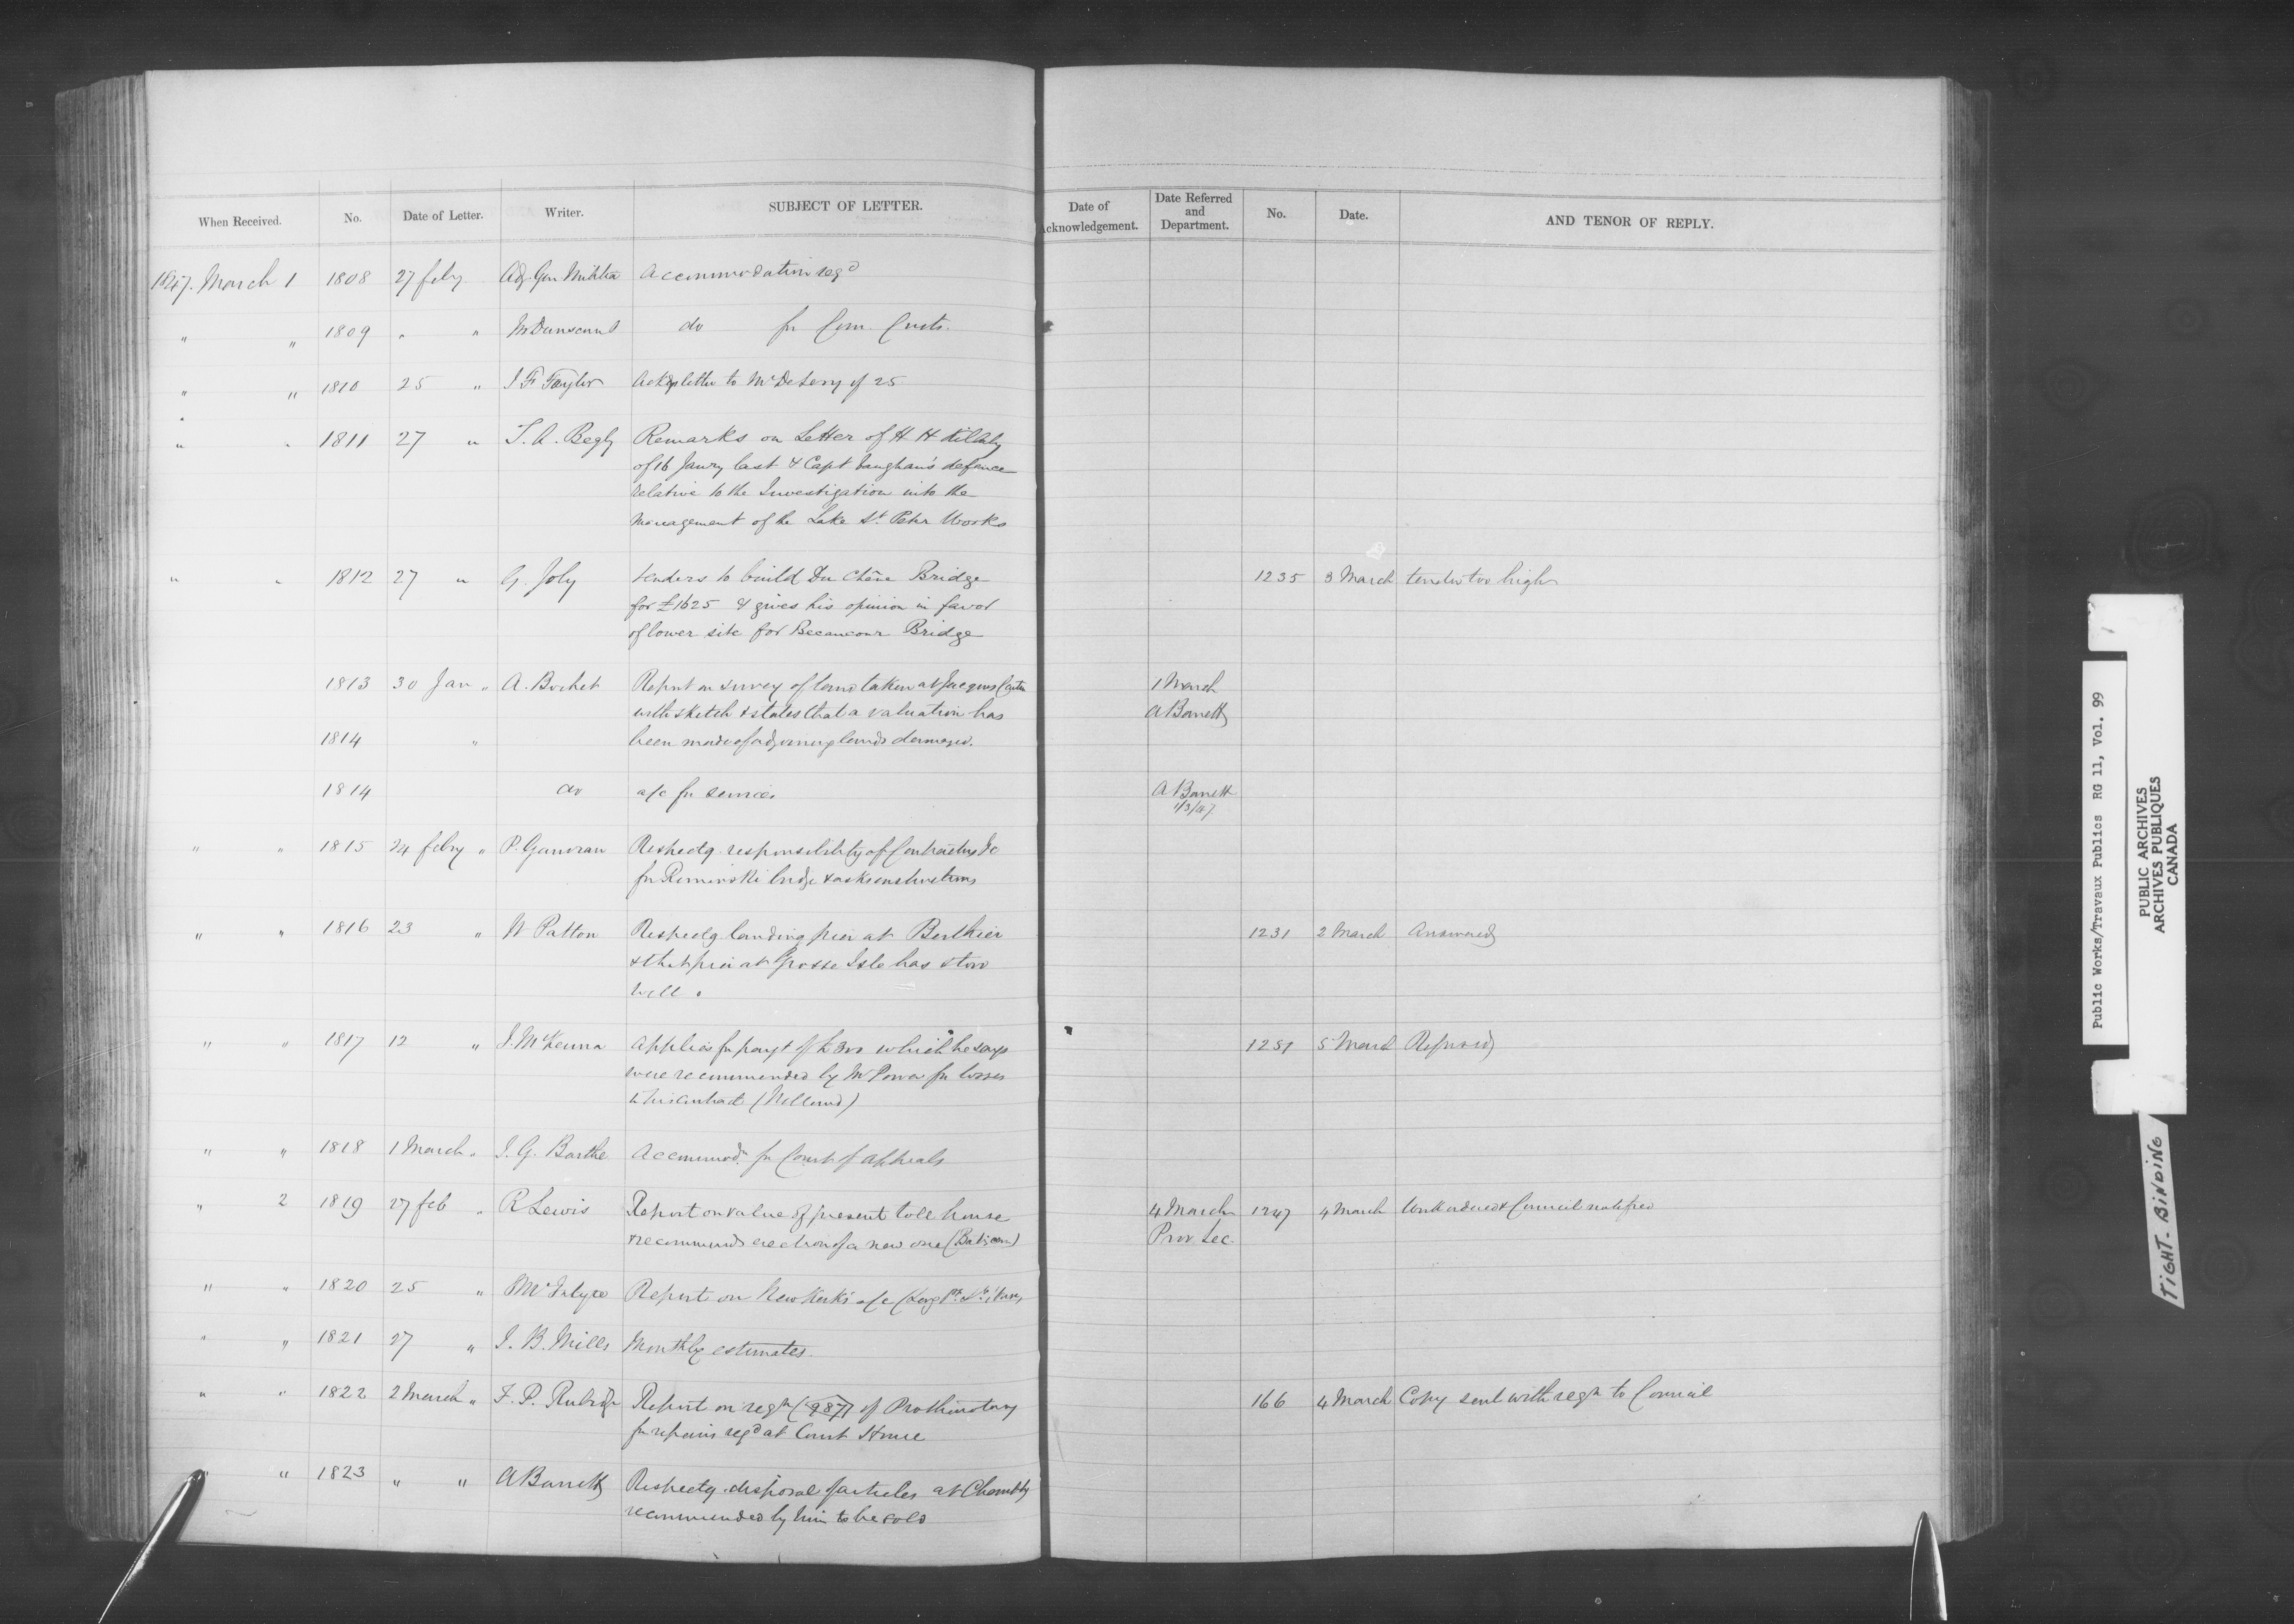 When Received. No. Date of Letter. Writer. SUBJECT OF LETTER. Date of Acknowledgement. Date Referred and Department. No. Date. AND TENOR OF REPLY.
1847. March 1 1808 27 feby Adj. Gen Militia Accommodation reqd
" " 1809 " " do for Com. Custs.
" " 1810 25 " J F Taylor letter to Mr DeLery of 25
" " 1811 27 " T. A. Begly Remarks on Letter of H H Killaly
of 16 Janry last & Capt Vaughan's defence
relative to the Investigation into the
management of the Lake St. Peter Works
" " 1812 27 " G. Joly tenders to build Du Chêne Bridge 1235 3 March tender too high
for £1625 & gives his opinion in favor
of lower site for Becancour Bridge
1813 30 Jan " A. Bochet Report on survey of land taken at Jacques Cartier 1 March
with sketch & states that a valuation has A Barrett
1814 " been made of adjoining lands damaged.
1814 do a/c for services A Barrett
1/3/47
" " 1815 24 feby " P. Gauvreau Respectg responsibility of Contractors &c
for Rimouski bridge & asks instructions
" " 1816 23 " W Patton Respectg landing pier at Berthier 1231 2 March Answered
& that pier at Grosse Isle has stood
well.
" " 1817 12 " J. McKenna Applies for payt of £300 which he says 1251 5 March Refused
were recommended by Mr Power for losses
in his contract (Welland)
" " 1818 1 March " J. G. Barthe Accommodn for Court of Appeals
" 2 1819 27 feb " R Lewis Report on value of present toll house 4 March 1247 4 March Work ordered & Council notified
& recommends erection of a new one (Batiscan) Prov Sec.
" " 1820 25 " McIntyre Report on Newkirk's a/c
" " 1821 27 " J. B. Mills Monthly estimates.
" " 1822 2 March " F. P. Rubidge Report on reqn (987) of Prothonotary 166 4 March Copy sent with reqn to Council
for repairs reqd at Court House
" " 1823 " " A Barrett Respectg disposal of articles at Chambly
recommended by him to be sold
Public Works/Travaux Publics RG 11, Vol. 99
PUBLIC ARCHIVES
ARCHIVES PUBLIQUES
CANADA
TIGHT. BINDING